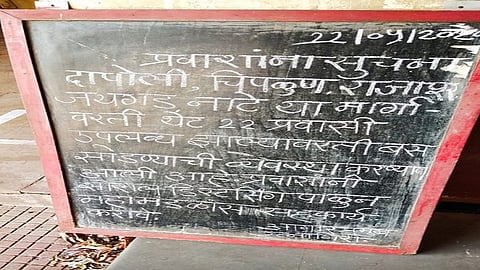 22/05/202
प्रवाशांना सुचना
दापोली, चिपळुण, राजापुर
जयगड, नाटे या मार्गा
वरती थेट 22 प्रवासी
उपलब्ध झाल्यावरती बस
सोडण्याची व्यवस्था करण्यात
आली आहे प्रवाशांनी
सोशल डिस्टसिंग पाळुन
महामंडळास सहकार्य
करावे.